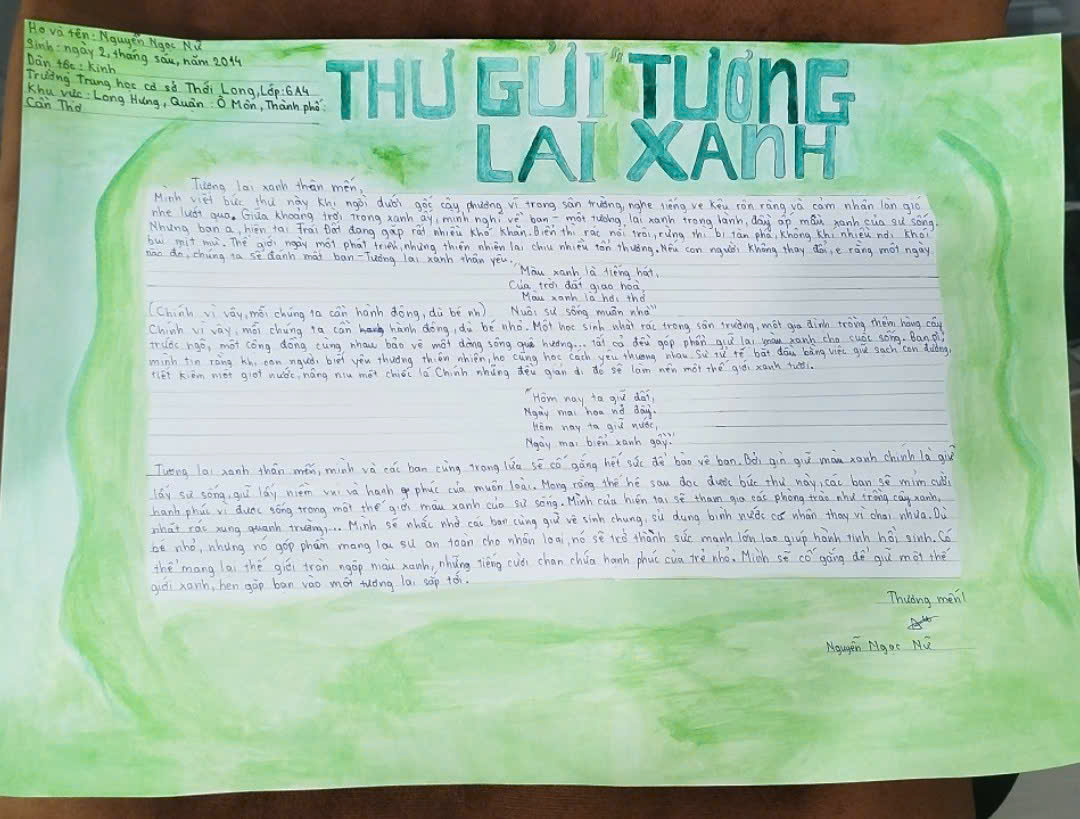 Họ và tên: Nguyễn Ngọc Nữ
Sinh: ngày 2, tháng sáu, năm 2014
Dân tộc: Kinh
Trường Trung học cơ sở Thới Long, Lớp: 6A4
Khu vực: Long Hưng, Quận: Ô Môn, Thành phố:
Cần Thơ
THƯ GỬI "TƯƠNG
LAI" XANH
Tương lai xanh thân mến,
Mình viết bức thư này khi ngồi dưới gốc cây phượng vĩ trong sân trường, nghe tiếng ve kêu rôn ràng và cảm nhận làn gió
nhẹ lướt qua. Giữa khoảng trời trong xanh ấy, mình nghĩ về bạn - một tương lai xanh trong lành, đầy ắp màu xanh của sự sống.
Nhưng bạn ạ, hiện tại Trái Đất đang gặp rất nhiều khó khăn. Biển thì rác nổi trôi, rừng thì bị tàn phá, không khí nhiều nơi khói
bụi mịt mù. Thế giới ngày một phát triển, nhưng thiên nhiên lại chịu nhiều tổn thương. Nếu con người không thay đổi, e rằng một ngày
nào đó, chúng ta sẽ đánh mất bạn - Tương lai xanh thân yêu.
"Màu xanh là tiếng hát,
Của trời đất giao hoà
Màu xanh là hơi thở
(Chính vì vậy, mỗi chúng ta cần hành động, dù bé nh) Nuôi sự sống muôn nhà"
Chính vì vậy, mỗi chúng ta cần hành động, dù bé nhỏ. Một học sinh nhặt rác trong sân trường, một gia đình trồng thêm hàng cây
trước ngõ, một cộng đồng cùng nhau bảo vệ một dòng sông quê hương... tất cả đều góp phần giữ lại màu xanh cho cuộc sống. Bạn ơi,
mình tin rằng khi con người biết yêu thương thiên nhiên, họ cũng học cách yêu thương nhau. Sự tử tế bắt đầu bằng việc giữ sạch con đường,
tiết kiệm một giọt nước, nâng niu một chiếc lá. Chính những điều giản dị đó sẽ làm nên một thế giới xanh tươi.
"Hôm nay ta giữ đất,
Ngày mai hoa nở đầy.
Hôm nay ta giữ nước,
Ngày mai biển xanh gầy."
Tương lai xanh thân mến, mình và các bạn cùng trang lứa sẽ cố gắng hết sức để bảo vệ bạn. Bởi gìn giữ màu xanh chính là giữ
lấy sự sống, giữ lấy niềm vui và hạnh phúc của muôn loài. Mong rằng thế hệ sau đọc được bức thư này, các bạn sẽ mỉm cười
hạnh phúc vì được sống trong một thế giới màu xanh của sự sống. Mình của hiện tại sẽ tham gia các phong trào như trồng cây xanh,
nhặt rác xung quanh trường,... Mình sẽ nhắc nhở các bạn cùng giữ vệ sinh chung, sử dụng bình nước cá nhân thay vì chai nhựa. Dù
bé nhỏ, nhưng nó góp phần mang lại sự an toàn cho nhân loại, nó sẽ trở thành sức mạnh lớn lao giúp hành tinh hồi sinh. Có
thể mang lại thế giới tràn ngập màu xanh, những tiếng cười chan chứa hạnh phúc của trẻ nhỏ. Mình sẽ cố gắng để giữ một thế
giới xanh, hẹn gặp bạn vào một tương lai sắp tới.
Thương mến!
Nguyễn Ngọc Nữ